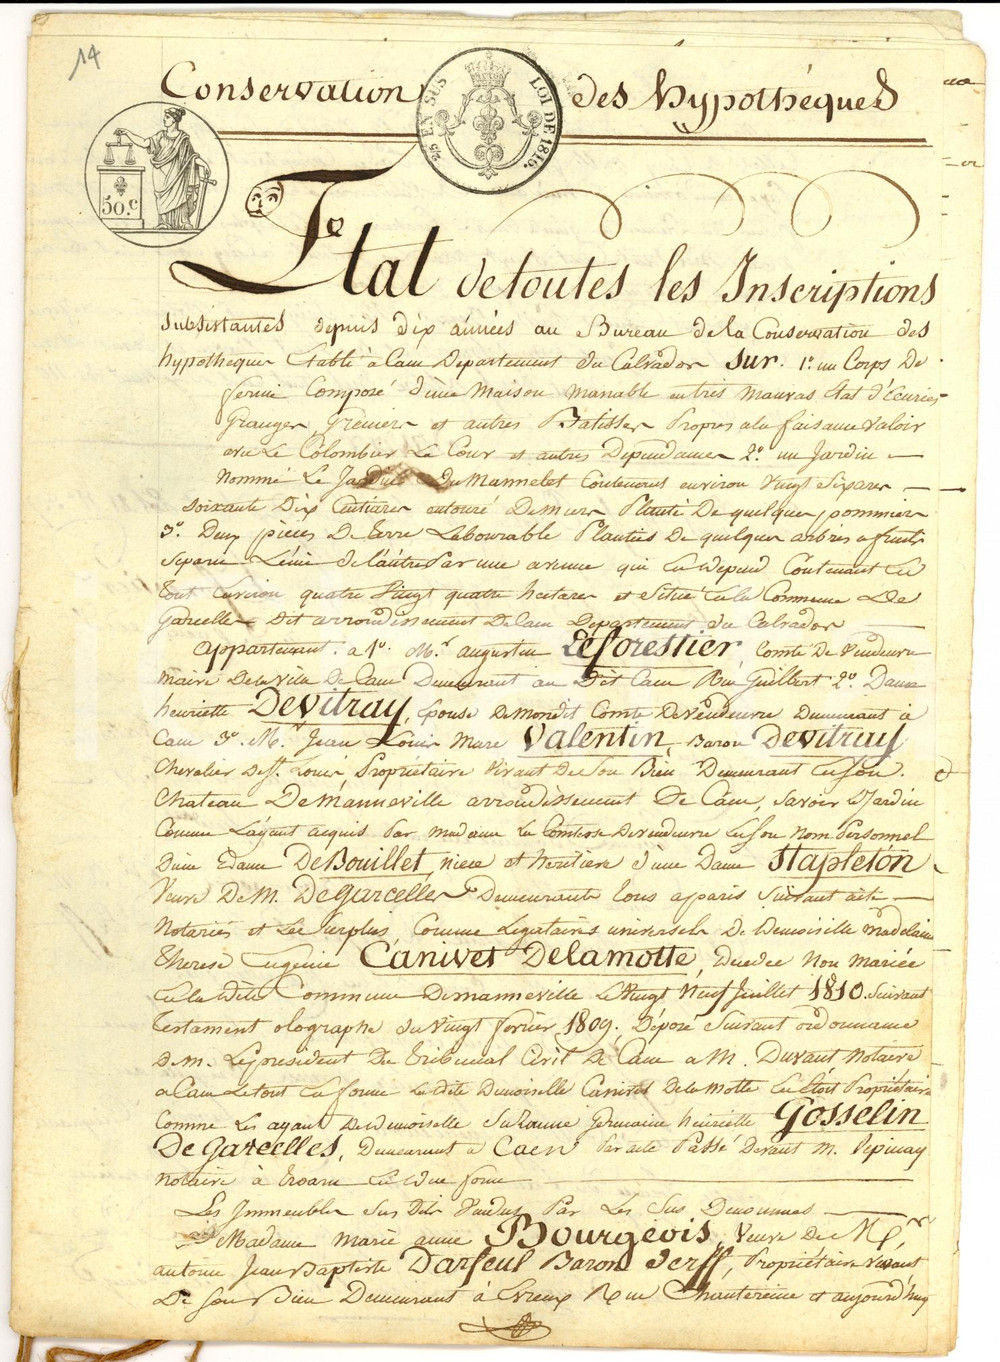 14
Conservation des hypothéqued
2/5 EN SUS LOI DE 1816.
50.c
Etat de toutes les Inscriptions
subsistantes depuis dix années au Bureau de la Conservation des
hypotheques Etabli à Caen Departement du Calvados sur. 1° un Corps De
ferme Composé d'une Maison Manable en très mauvais Etat d'Ecuries
Granges, Greniers et autres Batisses Propres a la faisance valoir
avec Le Colombier La Cour et autres Dependances 2° un Jardin
nommé Le Jardin du Mannelet Contenant environ vingt six ares
soixante Dix Centiares entouré De murs Planté De quelques pommiers
3° Deux pièces De terre Labourable Plantées De quelques arbres a fruits
separée L'une de l'autre Par une avenue qui en depend Contenant en
tout Environ quatre vingt quatre hectares et Située en la Commune De
Garcelles Dit arrondissement De Caen Departement du Calvados
appartenant. a 1° M.r augustin Leforestier, Comte De Vendeuvre
maire De la ville De Caen Demeurant au Dit Caen Rue Guilbert 2° Dame
henriette Devitray, Epouse De mondit Comte De Vendeuvre Demeurant à
Caen 3° M.r Jean Louis Marc Valentin, Baron Devitray
Chevalier de St. Louis, Propriétaire vivant De Son Bien Demeurant en son
Chateau De Manneville arrondissement De Caen, savoir Le Jardin
Comme L'ayant acquis Par madame la Comtesse De vendeuvre En son nom Personnel
D'une Edame De Bouillet, niece et heritiere d'une Dame Stapleton
Veuve De M. De Garcelles Demeurante tous a paris Suivant acte
Notariés et Le Surplus, Comme Legataires universels De Demoiselle Madelaine
Therese Eugenie Canivet Delamotte, Decedée Non Mariée
En la dite Commune De manneville Le Vingt Neuf Juillet 1810. Suivant
Testament olographe du vingt fevrier 1809. Déposé suivant ordonnance
De M. Le president Du Tribunal Civil De Caen a M. Durant Notaire
a Caen Le tout En forme Ladite Demoiselle Canivet De la Motte En étoit Propriétaire
Comme Les ayant De Demoiselle Suzanne Germaine henriette Gosselin
De Garcelles, Demeurant a Caen Par acte Passé Devant M. Pepinay
notaire à Troarn En Due forme
Les Immeubles Sus Dits Vendus Par Les Sus Denommés
Madame Marie anne Bourgeois, Veuve De M.r
antoine Jean Baptiste Darseul Baron Derff, Propriétaire vivant
De Son Bien Demeurant à Evreux Rue Chantereine et aujourd'huy